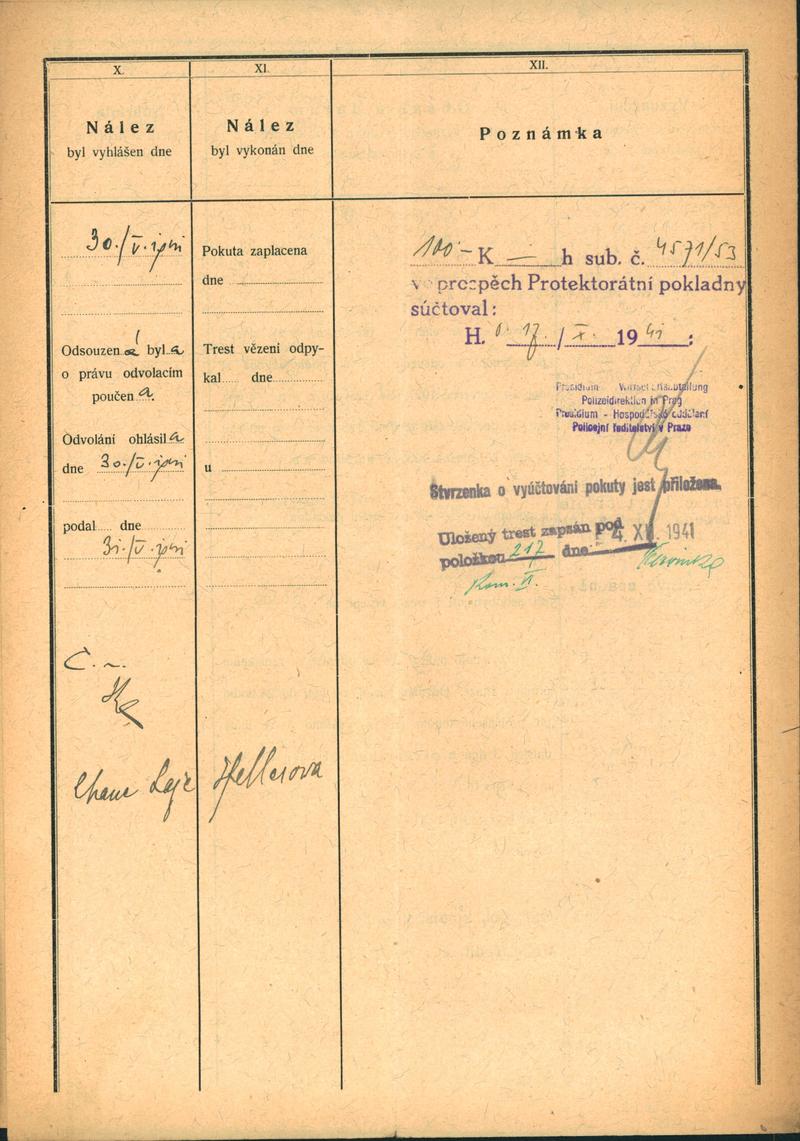 X.
Nález
byl vyhlášen dne
30./V. 1941
Odsouzen á byl a
o právu odvolacím
poučen a.
Odvolání ohlásil a
dne 30./V. 1941
podal dne
31./V. 1941
Chane Laje Hellerova
XI.
Nález
byl vykonán dne
Pokuta zaplacena
dne
Trest vězení odpy-
kal dne
u
XII.
Poznámka
100 - K — h sub. č. 4571/53
ve prospěch Protektorátní pokladny
súčtoval:
H. 17/X. 1941:
Präsidium - Wirtschaftsabteilung
Polizeidirektion in Prag
Presidium - Hospodářské oddělení
Policejní ředitelství v Praze
Stvrzenka o vyúčtování pokuty jest přiložena.
Uložený trest zapsán pod
položkou 217 dne 4. XII. 1941
Kom. VI.